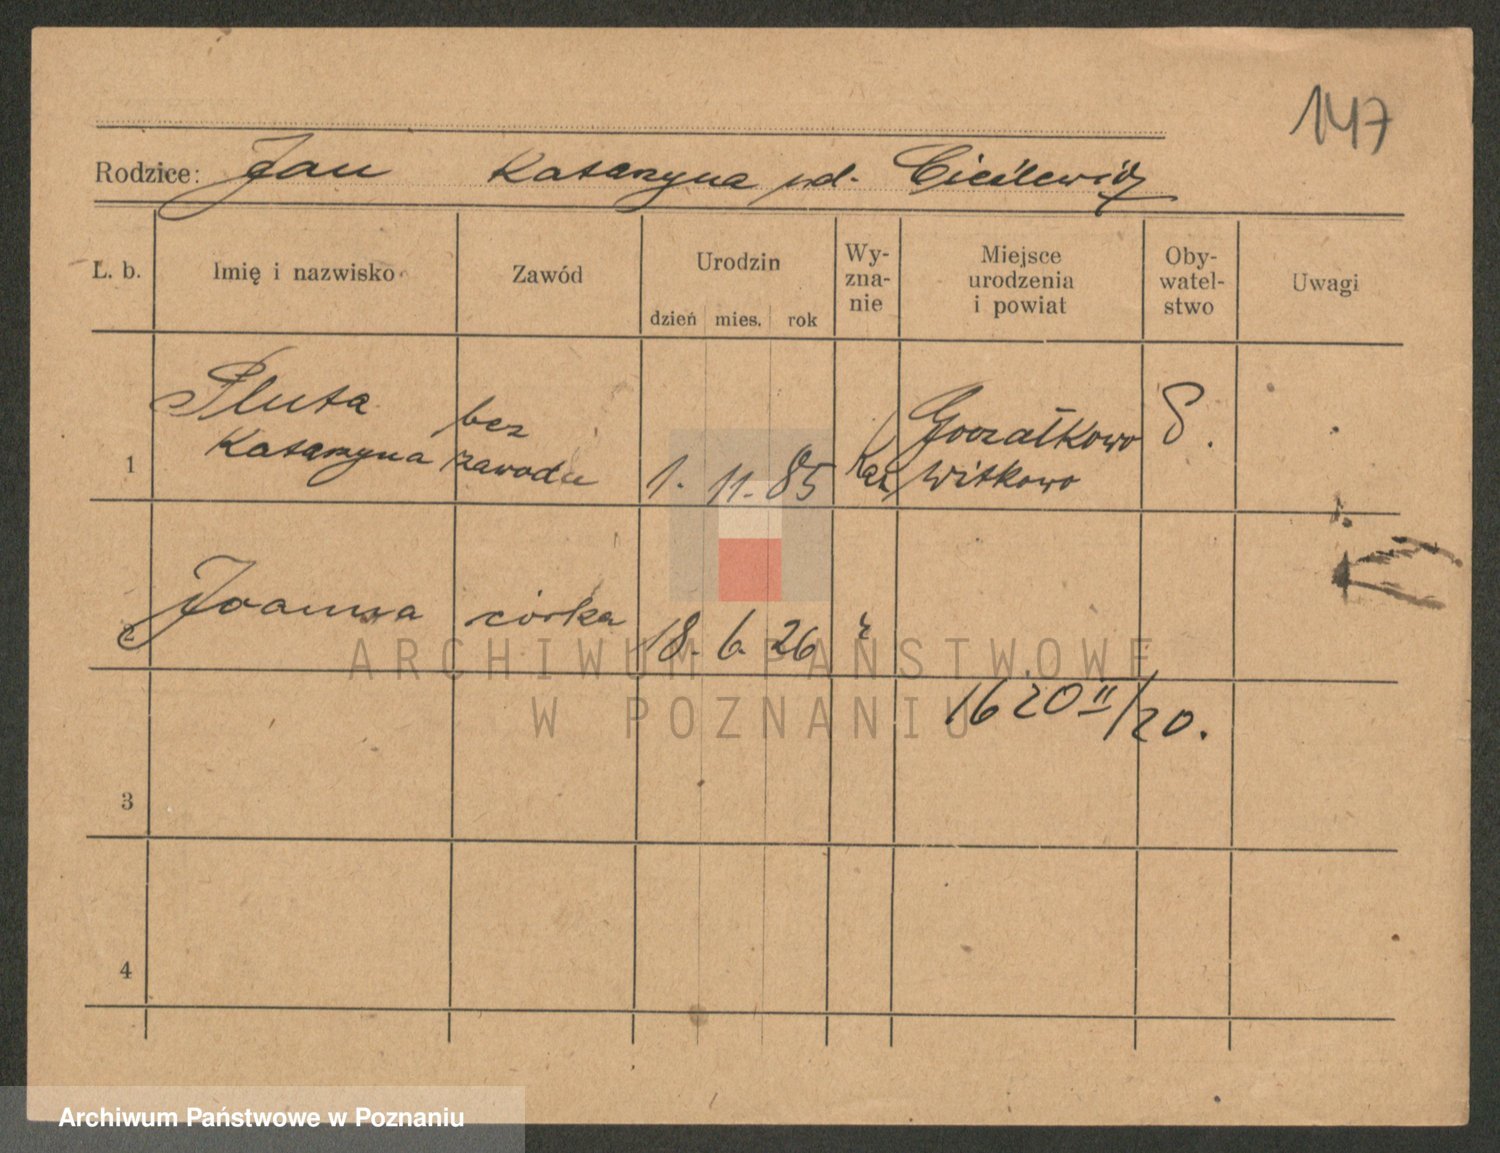 147
Rodzice: Jan Katarzyna ur d. Cieślewicz
L. b. Imię i nazwisko Zawód Urodzin dzień mies. rok Wy-zna-nie Miejsce urodzenia i powiat Oby-watel-stwo Uwagi
1 Pluta Katarzyna bez zawodu 1. 11. 85 Kat. Gorzałkowo Witkowo P.
2 Joanna córka 18. 6. 26
1620 II/20.
3
4
ARCHIWUM PAŃSTWOWE
W POZNANIU
Archiwum Państwowe w Poznaniu